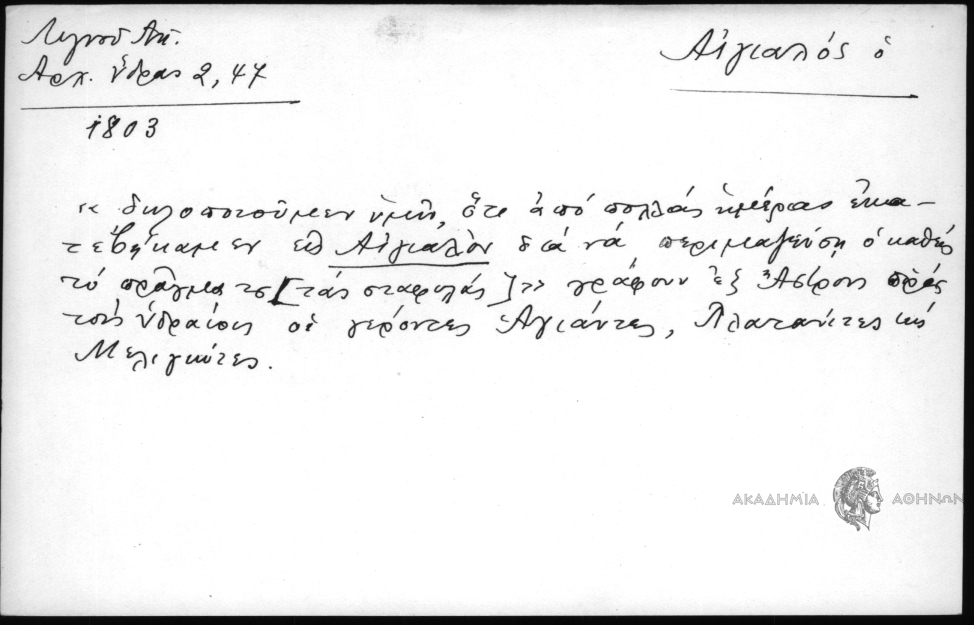 Λιγνοῦ Ἀντ.
Ἀρχ. Ὕδρας 2, 47
Αἰγιαλός ὁ
1803
« δηλοποιοῦμεν ὑμῖν, ὅτι ἀπό πολλάς ἡμέρας ἐκα-
τεβήκαμεν εἰς Αἰγιαλόν διά νά περιμαζεύση ὁ καθείς
τό πρᾶγμα τς [τάς σταφυλάς]» γράφουν ἐξ Ἄστρους πρός
τούς Ὑδραίους οἱ γέροντες Ἁγιάντες, Πλατανίτες κ̀
Μελιγκιώτες.
ΑΚΑΔΗΜΙΑ ΑΘΗΝΩΝ